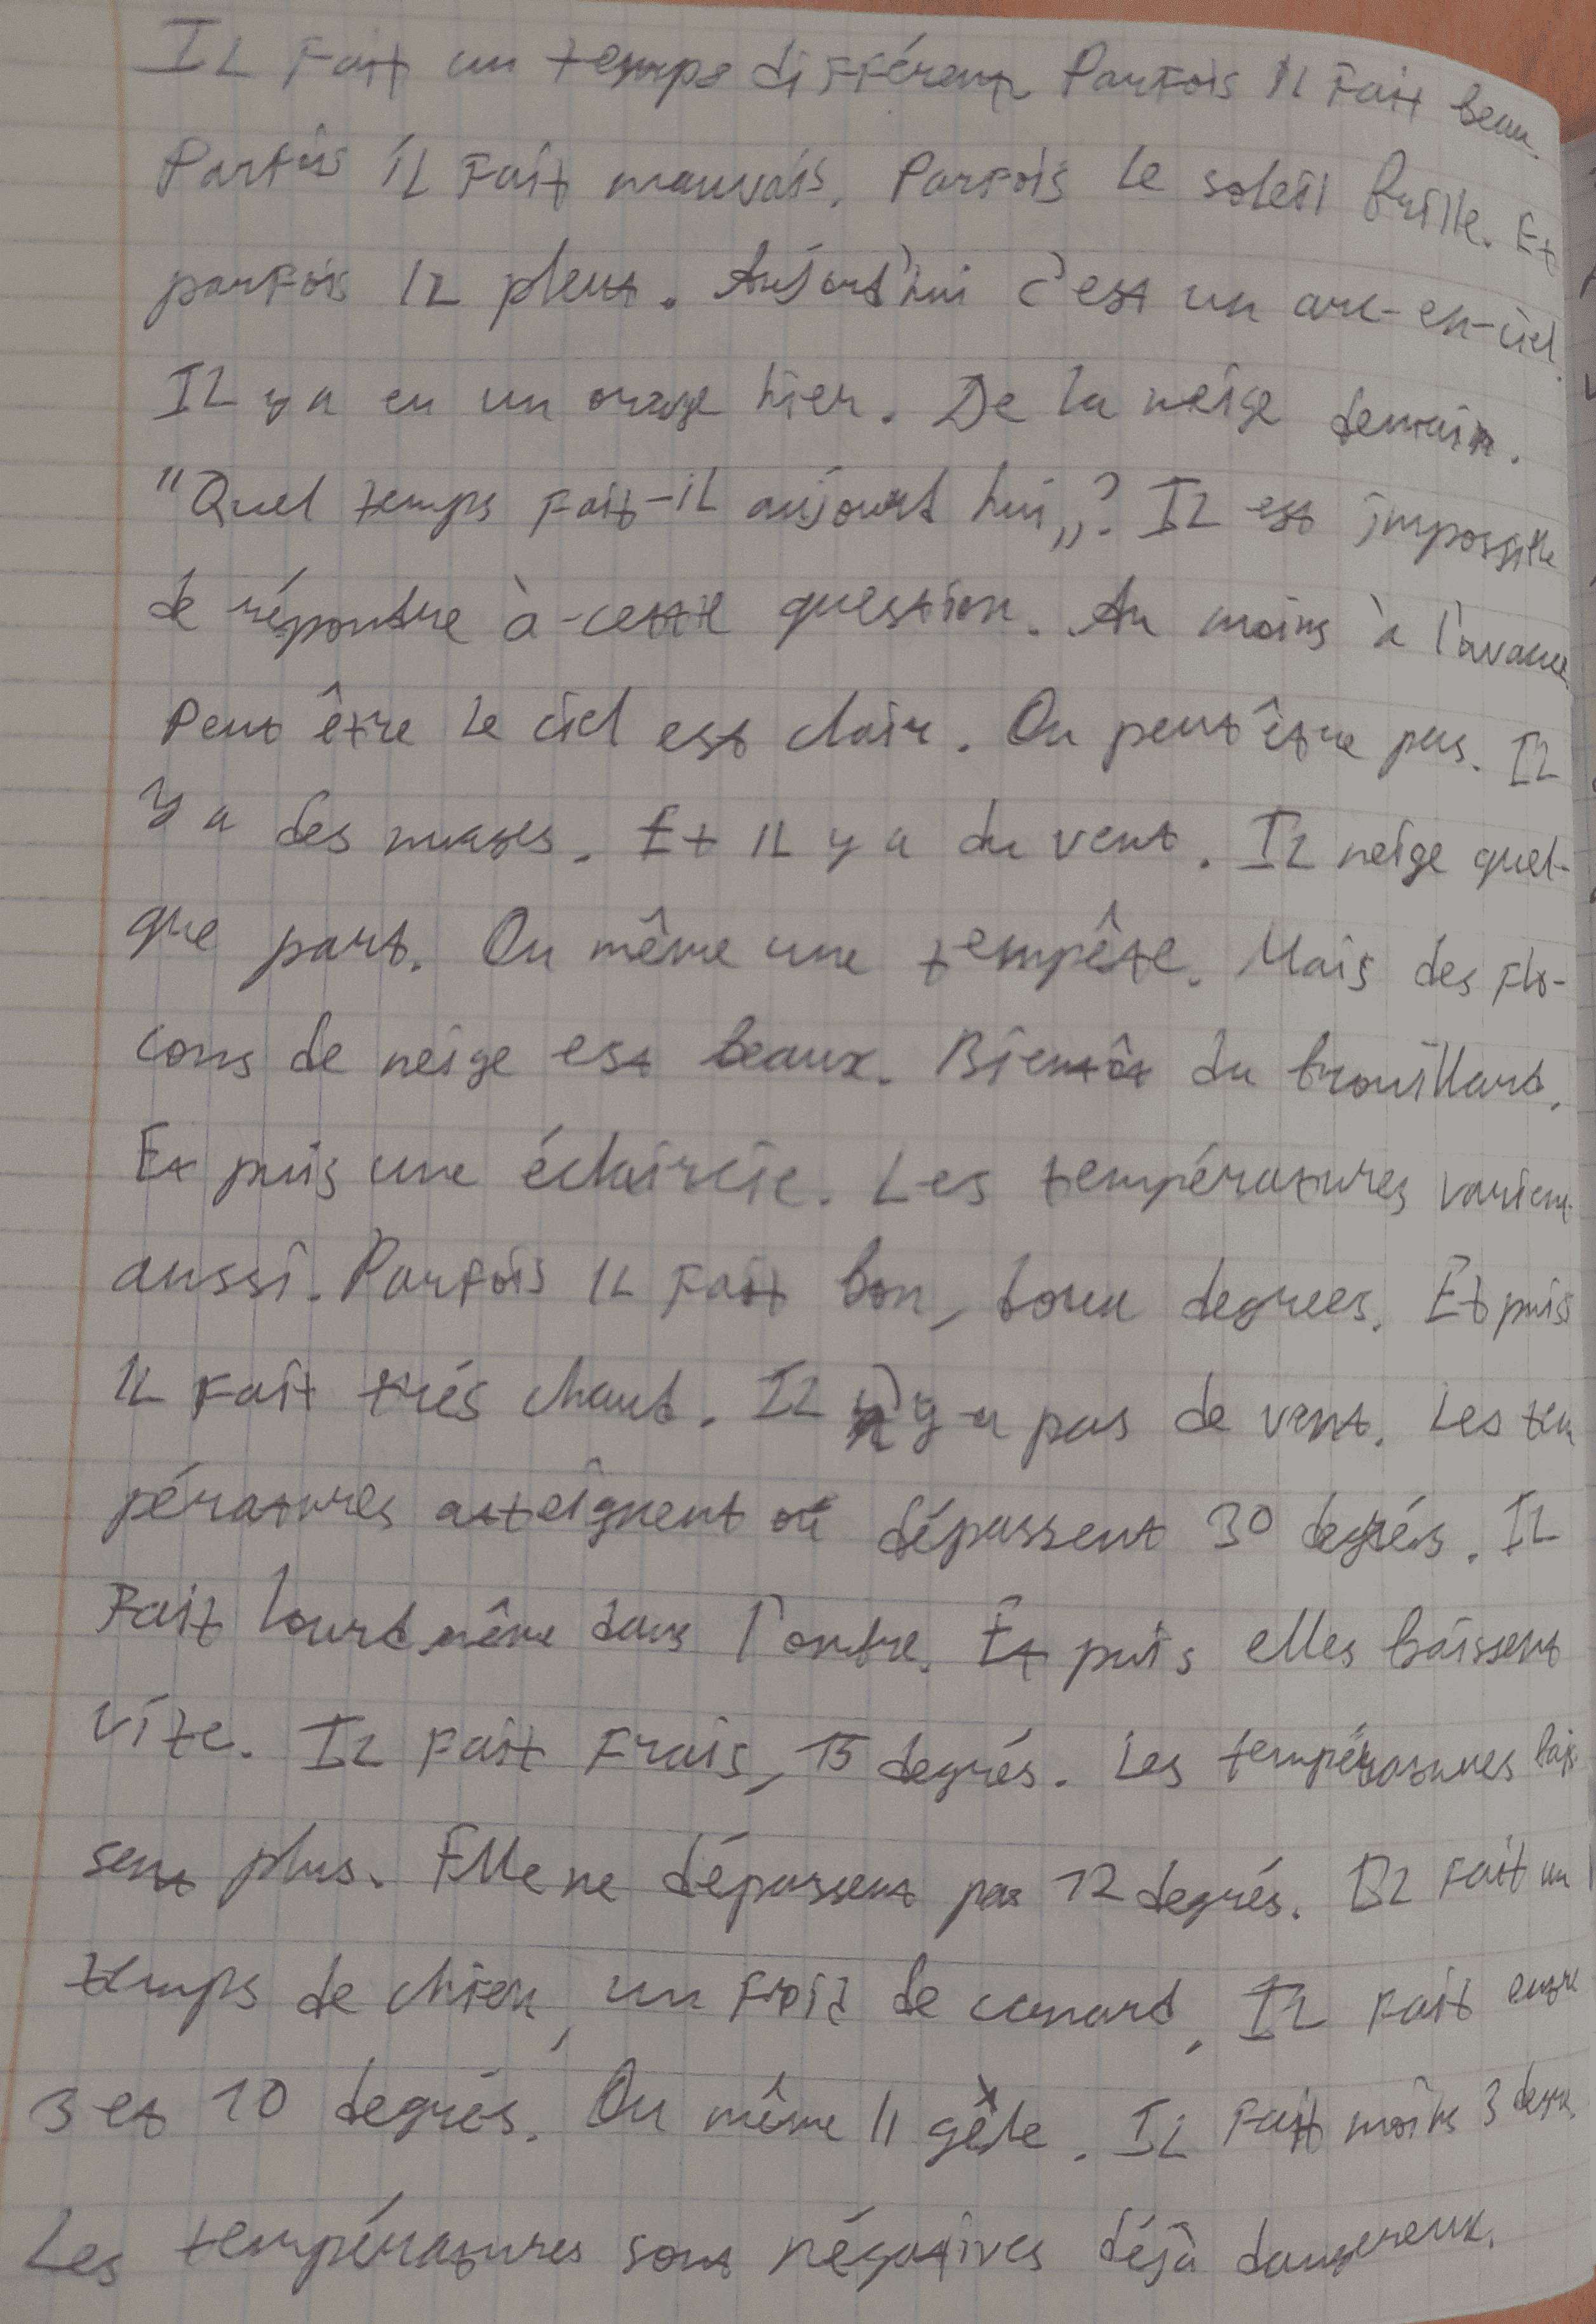 Il fait un temps différent Parfois il fait beau.
Parfois il fait mauvais. Parfois le soleil brille. Et
parfois il pleut. Aujourd'hui c'est un arc-en-ciel.
Il y a eu un orage hier. De la neige demain.
"Quel temps fait-il aujourd hui„? Il est impossible
de répondre à cette question. Au moins à l'avance.
Peut être le ciel est clair. Ou peut être pas. Il
y a des nuages. Et il y a du vent. Il neige quel-
que part. Ou même une tempête. Mais des flo-
cons de neige est beaux. Bientôt du brouillard.
Et puis une éclaircie. Les températures varient
aussi. Parfois il fait bon, doux degrees. Et puis
il fait trés chaud. Il n'y a pas de vent. Les tem
pératures atteignent ou dépassent 30 degrés. Il
fait lourd même dans l'ombre. Et puis elles baissent
vite. Il fait frais, 15 degrés. Les températures bais
sent plus. Elle ne dépassent pas 12 degrés. Il fait un
temps de chien, un froid de canard. Il fait entre
3 et 10 degrés. Ou même il gèle. Il fait moins 3 degrés.
Les températures sont négatives déjà dangereux.